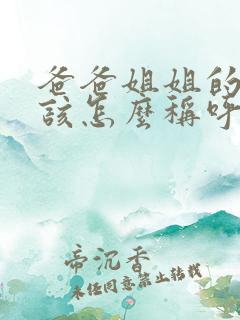 爸爸姐姐的
該怎麼稱呼
帝沉香
未经同意禁止转载